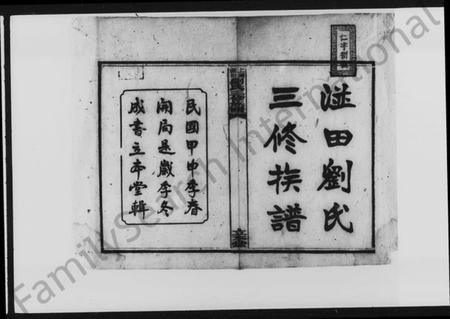 田劉氏
三修族譜
民國甲申季春
開局是歲季冬
成書立本堂輯
FamilySearch International